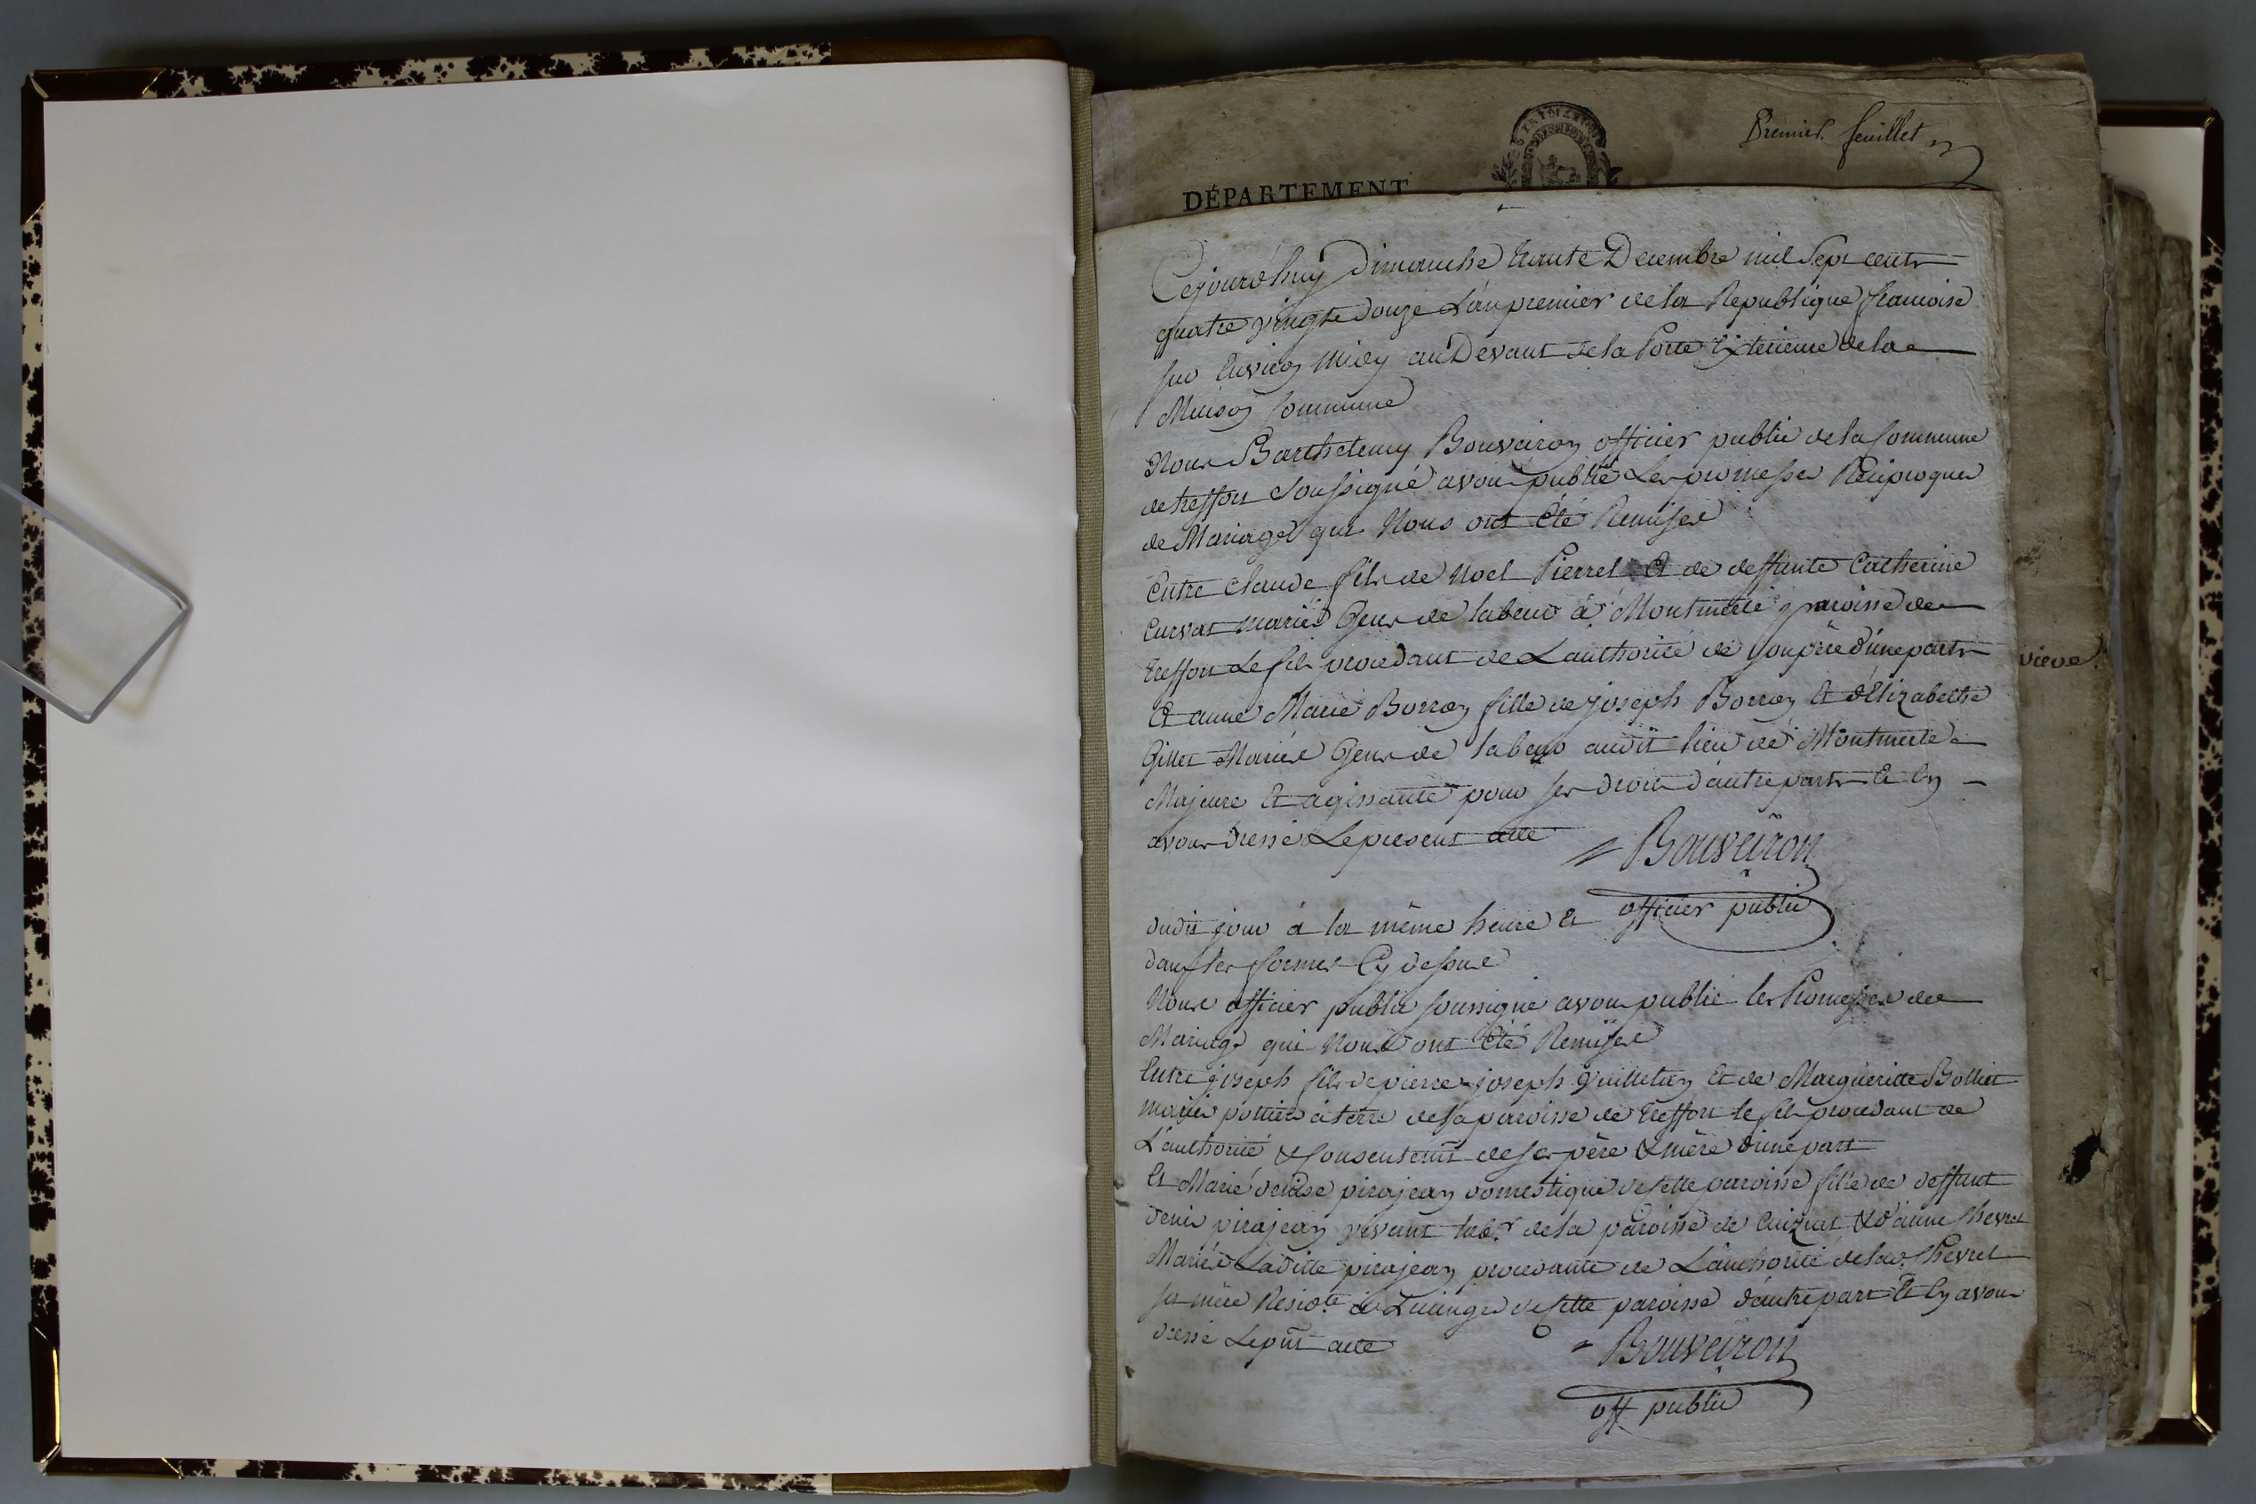 Premier feuillet
DÉPARTEMENT
Cejourd'huy Dimanche trante Decembre mil Sept cents
quatre vingts douze L'an premier de la Republique francoise
sur Environ Midy au Devant de la Porte Exterieure de la
Maison Commune
Nous Barthelemy Bouveiron officier public de la Commune
de treffort Soussigné avons publié Les promesses Réciproques
de Mariage qui Nous ont été Remises
Entre Claude fils de Noel Pierrel Et de deffunte Catherine
Curvat mariés Gens de labeur à Montmerle paroisse de
treffort Le fils procedant de L'authorité de son père d'une part
Et anne Marie Borron fille de joseph Borron Et d'Elizabeth
Gillet Mariés Gens de labeur audit lieu de Montmerle
Majeure Et agissante pour ses droits d'autre part Et En
avons dressé Le present acte
Bouveiron
officier public
dudit jour à la même heure Et
dans les formes Cy dessus
Nous officier public soussigné avons publié les Promesses de
Mariage qui Nous ont été Remises
Entre joseph fils de pierre joseph Guilletin Et de Marguerite Bolliet
mariés potiers à terre de la paroisse de treffort le fils procedant de
L'authorité & Consentemt de ses père & mère d'une part
Et Marie denise pirajean domestique de Cette paroisse fille de deffunt
denis pirajean vivant labr de la paroisse de Cuiziat & d'anne Chevret
Mariés Ladite pirajean procedante de L'authorité de lad. Chevret
sa mère Residte à de Cette paroisse d'autre part Et En avons
dressé Le pnt acte
Bouveiron
off public
vieve